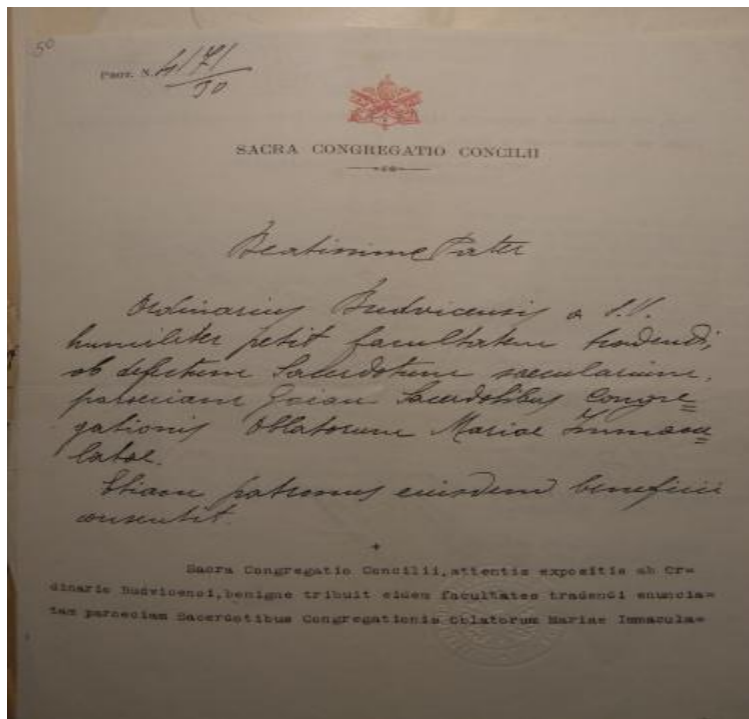 50
Prot. N. 4171/30
SACRA CONGREGATIO CONCILII
Beatissime Pater
Ordinarius Budvicensis a S.V.
humiliter petit facultatem tradendi,
ob defectum Sacerdotum saecularium,
paroeciam Sacerdotibus Congre=
gationis Oblatorum Mariae Immacu=
latae.
Etiam patronus eiusdem beneficii
consentit.
Sacra Congregatio Concilii, attentis expositis ab Or=
dinario Budvicensi, benigne tribuit eidem facultates tradendi enuncia=
tam paroeciam Sacerdotibus Congregationis Oblatorum Mariae Immacula=